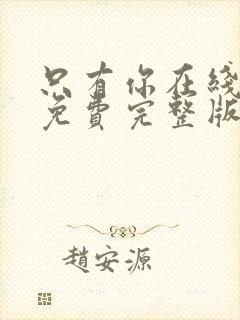 只有你在线
免費完整版
趙安源